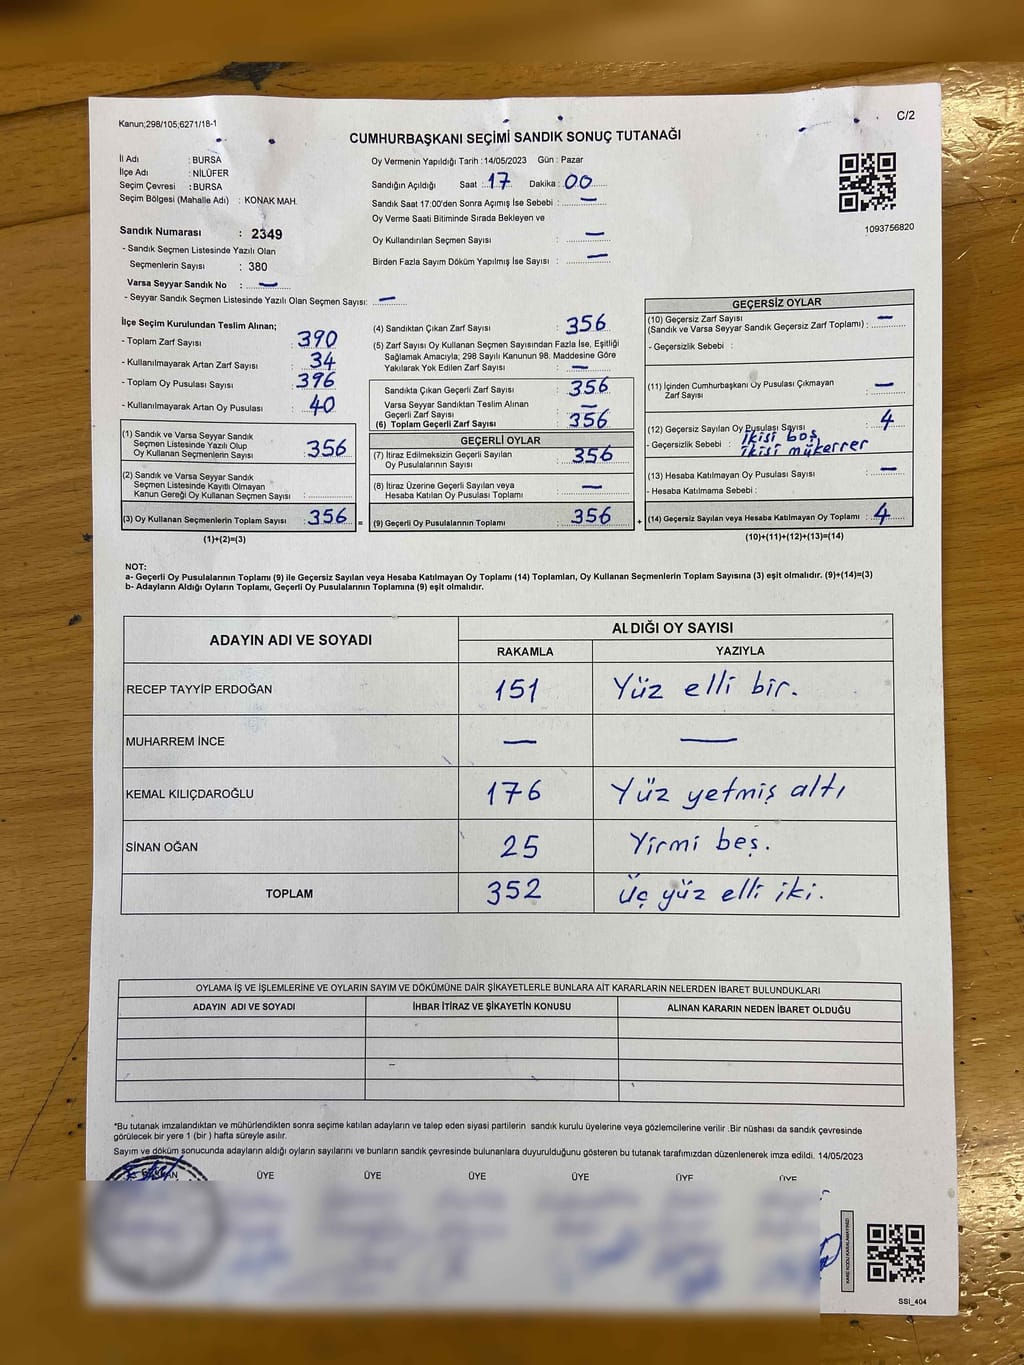 Kanun;298/105;6271/18-1
C/2
CUMHURBAŞKANI SEÇİMİ SANDIK SONUÇ TUTANAĞI
İl Adı : BURSA
İlçe Adı : NİLÜFER
Seçim Çevresi : BURSA
Seçim Bölgesi (Mahalle Adı) : KONAK MAH.
Sandık Numarası : 2349
- Sandık Seçmen Listesinde Yazılı Olan
Seçmenlerin Sayısı : 380
Varsa Seyyar Sandık No : —
- Seyyar Sandık Seçmen Listesinde Yazılı Olan Seçmen Sayısı: —
Oy Vermenin Yapıldığı Tarih :14/05/2023 Gün : Pazar
Sandığın Açıldığı Saat : 17 Dakika : 00
Sandık Saat 17:00'den Sonra Açımış İse Sebebi : —
Oy Verme Saati Bitiminde Sırada Bekleyen ve
Oy Kullandırılan Seçmen Sayısı : —
Birden Fazla Sayım Döküm Yapılmış İse Sayısı : —
1093756820
İlçe Seçim Kurulundan Teslim Alınan;
- Toplam Zarf Sayısı : 390
- Kullanılmayarak Artan Zarf Sayısı : 34
- Toplam Oy Pusulası Sayısı : 396
- Kullanılmayarak Artan Oy Pusulası : 40
(1) Sandık ve Varsa Seyyar Sandık
Seçmen Listesinde Yazılı Olup
Oy Kullanan Seçmenlerin Sayısı : 356
(2) Sandık ve Varsa Seyyar Sandık
Seçmen Listesinde Kayıtlı Olmayan
Kanun Gereği Oy Kullanan Seçmen Sayısı :
(3) Oy Kullanan Seçmenlerin Toplam Sayısı : 356 =
(1)+(2)=(3)
(4) Sandıktan Çıkan Zarf Sayısı : 356
(5) Zarf Sayısı Oy Kullanan Seçmen Sayısından Fazla İse, Eşitliği
Sağlamak Amacıyla; 298 Sayılı Kanunun 98. Maddesine Göre
Yakılarak Yok Edilen Zarf Sayısı : —
Sandıkta Çıkan Geçerli Zarf Sayısı : 356
Varsa Seyyar Sandıktan Teslim Alınan
Geçerli Zarf Sayısı : —
(6) Toplam Geçerli Zarf Sayısı : 356
GEÇERLİ OYLAR
(7) İtiraz Edilmeksizin Geçerli Sayılan
Oy Pusulalarının Sayısı : 356
(8) İtiraz Üzerine Geçerli Sayılan veya
Hesaba Katılan Oy Pusulası Toplamı : —
(9) Geçerli Oy Pusulalarının Toplamı : 356 +
GEÇERSİZ OYLAR
(10) Geçersiz Zarf Sayısı
(Sandık ve Varsa Seyyar Sandık Geçersiz Zarf Toplamı) : —
- Geçersizlik Sebebi :
(11) İçinden Cumhurbaşkanı Oy Pusulası Çıkmayan
Zarf Sayısı : —
(12) Geçersiz Sayılan Oy Pusulası Sayısı : 4
- Geçersizlik Sebebi : ikisi boş,
ikisi mükerrer
(13) Hesaba Katılmayan Oy Pusulası Sayısı : —
- Hesaba Katılmama Sebebi :
(14) Geçersiz Sayılan veya Hesaba Katılmayan Oy Toplamı : 4
(10)+(11)+(12)+(13)=(14)
NOT:
a- Geçerli Oy Pusulalarının Toplamı (9) ile Geçersiz Sayılan veya Hesaba Katılmayan Oy Toplamı (14) Toplamları, Oy Kullanan Seçmenlerin Toplam Sayısına (3) eşit olmalıdır. (9)+(14)=(3)
b- Adayların Aldığı Oyların Toplamı, Geçerli Oy Pusulalarının Toplamına (9) eşit olmalıdır.
ADAYIN ADI VE SOYADI
ALDIĞI OY SAYISI
RAKAMLA YAZIYLA
RECEP TAYYİP ERDOĞAN 151 Yüz elli bir.
MUHARREM İNCE — —
KEMAL KILIÇDAROĞLU 176 Yüz yetmiş altı
SİNAN OĞAN 25 Yirmi beş.
TOPLAM 352 Üç yüz elli iki.
OYLAMA İŞ VE İŞLEMLERİNE VE OYLARIN SAYIM VE DÖKÜMÜNE DAİR ŞİKAYETLERLE BUNLARA AİT KARARLARIN NELERDEN İBARET BULUNDUKLARI
ADAYIN ADI VE SOYADI İHBAR İTİRAZ VE ŞİKAYETİN KONUSU ALINAN KARARIN NEDEN İBARET OLDUĞU
*Bu tutanak imzalandıktan ve mühürlendikten sonra seçime katılan adayların ve talep eden siyasi partilerin sandık kurulu üyelerine veya gözlemcilerine verilir .Bir nüshası da sandık çevresinde
görülecek bir yere 1 (bir ) hafta süreyle asılır.
Sayım ve döküm sonucunda adayların aldığı oyların sayılarını ve bunların sandık çevresinde bulunanlara duyurulduğunu gösteren bu tutanak tarafımızdan düzenlenerek imza edildi. 14/05/2023
BAŞKAN ÜYE ÜYE ÜYE ÜYE ÜYE ÜYE
SSI_404